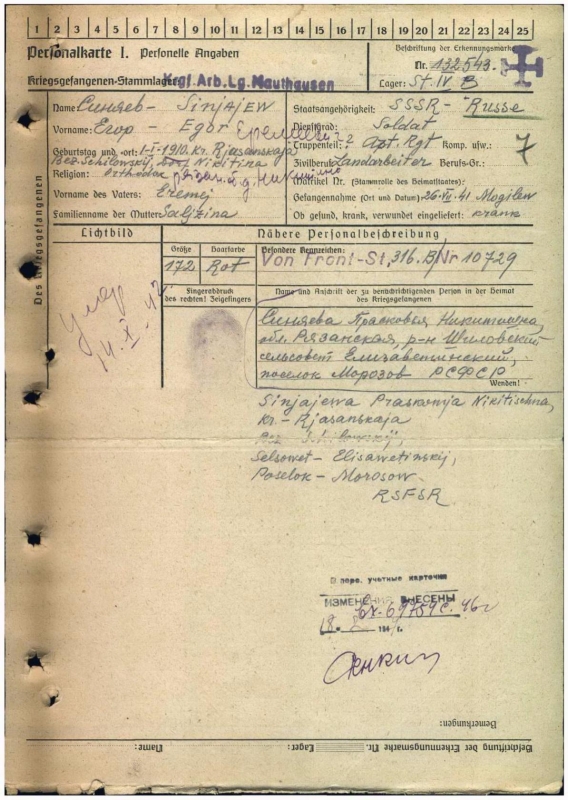 1 2 3 4 5 6 7 8 9 10 11 12 13 14 15 16 17 18 19 20 21 22 23 24 25
Personalkarte I. Personelle Angaben
Beschriftung der Erkennungsmarke
Nr. 132543
Kriegsgefangenen-Stammlager: Krgf. Arb. Lg. Mauthausen
Lager: St. IV B
Des Kriegsgefangenen
Name: Синяев - SINJAJEW
Staatsangehörigkeit: SSSR - Russe
Vorname: Егор - Egor
Dienstgrad: Soldat
Truppenteil: ?? Apt. Rgt Komp. usw.:
7
Geburtstag und -ort: 1-I-1910. Kr. Rjasanskaja
Bez. Schilowskij, Nikitina
Zivilberuf: Landarbeiter Berufs-Gr.:
Religion: Orthodox
Matrikel Nr. (Stammrolle des Heimatstaates):
Vorname des Vaters: Eremej
Gefangennahme (Ort und Datum): 26.VII.41 Mogilew
Familienname der Mutter: Saljzina
Ob gesund, krank, verwundet eingeliefert: krank
Lichtbild
Nähere Personalbeschreibung
Größe Haarfarbe Besondere Kennzeichen:
172 Rot Von Front-St. 316.B/Nr 10729
Fingerabdruck
des rechten! Zeigefingers
Name und Anschrift der zu benachrichtigenden Person in der Heimat
des Kriegsgefangenen
умер
14. X - 42
Синяева Прасковья Никитишна,
обл. Рязанская, р-н Шиловский
сельсовет Елизаветинский,
поселок Морозов РСФСР
Wenden!
Sinjajewa Praskowja Nikitischna,
Kr. - Rjasanskaja
Selsowet - Elisawetinskij,
Poselok - Morosow
RSFSR
учетные карточки
ИЗМЕНЕНИЯ ВНЕСЕНЫ
18. 194 г.
Bemerkungen:
Beschriftung der Erkennungsmarke Nr. Lager: Name: